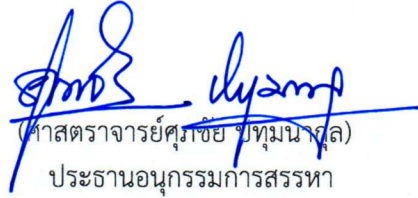 (ศาสตราจารย์ศุภชัย ปทุมนากุล)
ประธานอนุกรรมการสรรหา